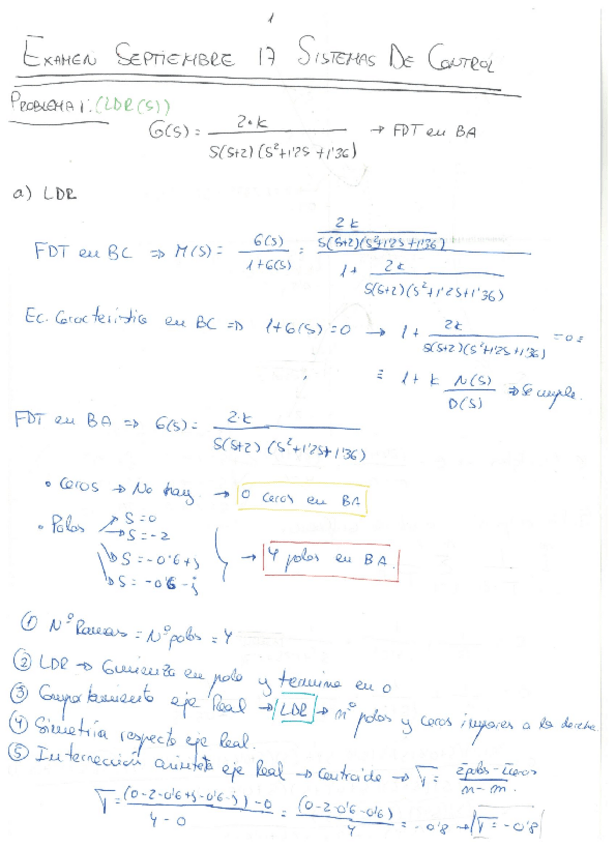 1
EXAMEN SEPTIEMBRE 17 SISTEMAS DE CONTROL
PROBLEMA 1: (LDR(S))
G(s) = 2·k / s(s+2)(s²+1'2s+1'36) → FDT en BA
a) LDR
FDT en BC ⇒ M(s) = G(s) / 1+G(s) = 2k / s(s+2)(s²+1'2s+1'36) / 1 + 2k / s(s+2)(s²+1'2s+1'36)
Ec. Característica en BC ⇒ 1+G(s) = 0 → 1 + 2k / s(s+2)(s²+1'2s+1'36) = 0 ≡
≡ 1 + k N(s) / D(s) ⇒ Se cumple.
FDT en BA ⇒ G(s) = 2·k / s(s+2)(s²+1'2s+1'36)
• Ceros → No hay → 0 ceros en BA
• Polos → s=0
→ s=-2
→ s=-0'6+j → 4 polos en BA.
→ s=-0'6-j
① Nº Ramas = Nº polos = 4
② LDR → Comienza en polo y termina en 0
③ Comportamiento eje Real → LDR → nº polos y ceros impares a la derecha
④ Simetría respecto eje Real.
⑤ Intersección asíntota eje Real → Centroide → σ = Σpolos - Σceros / n-m.
σ = (0-2-0'6+j-0'6-j)-0 / 4-0 = (0-2-0'6-0'6) / 4 = -0'8 → σ = -0'8